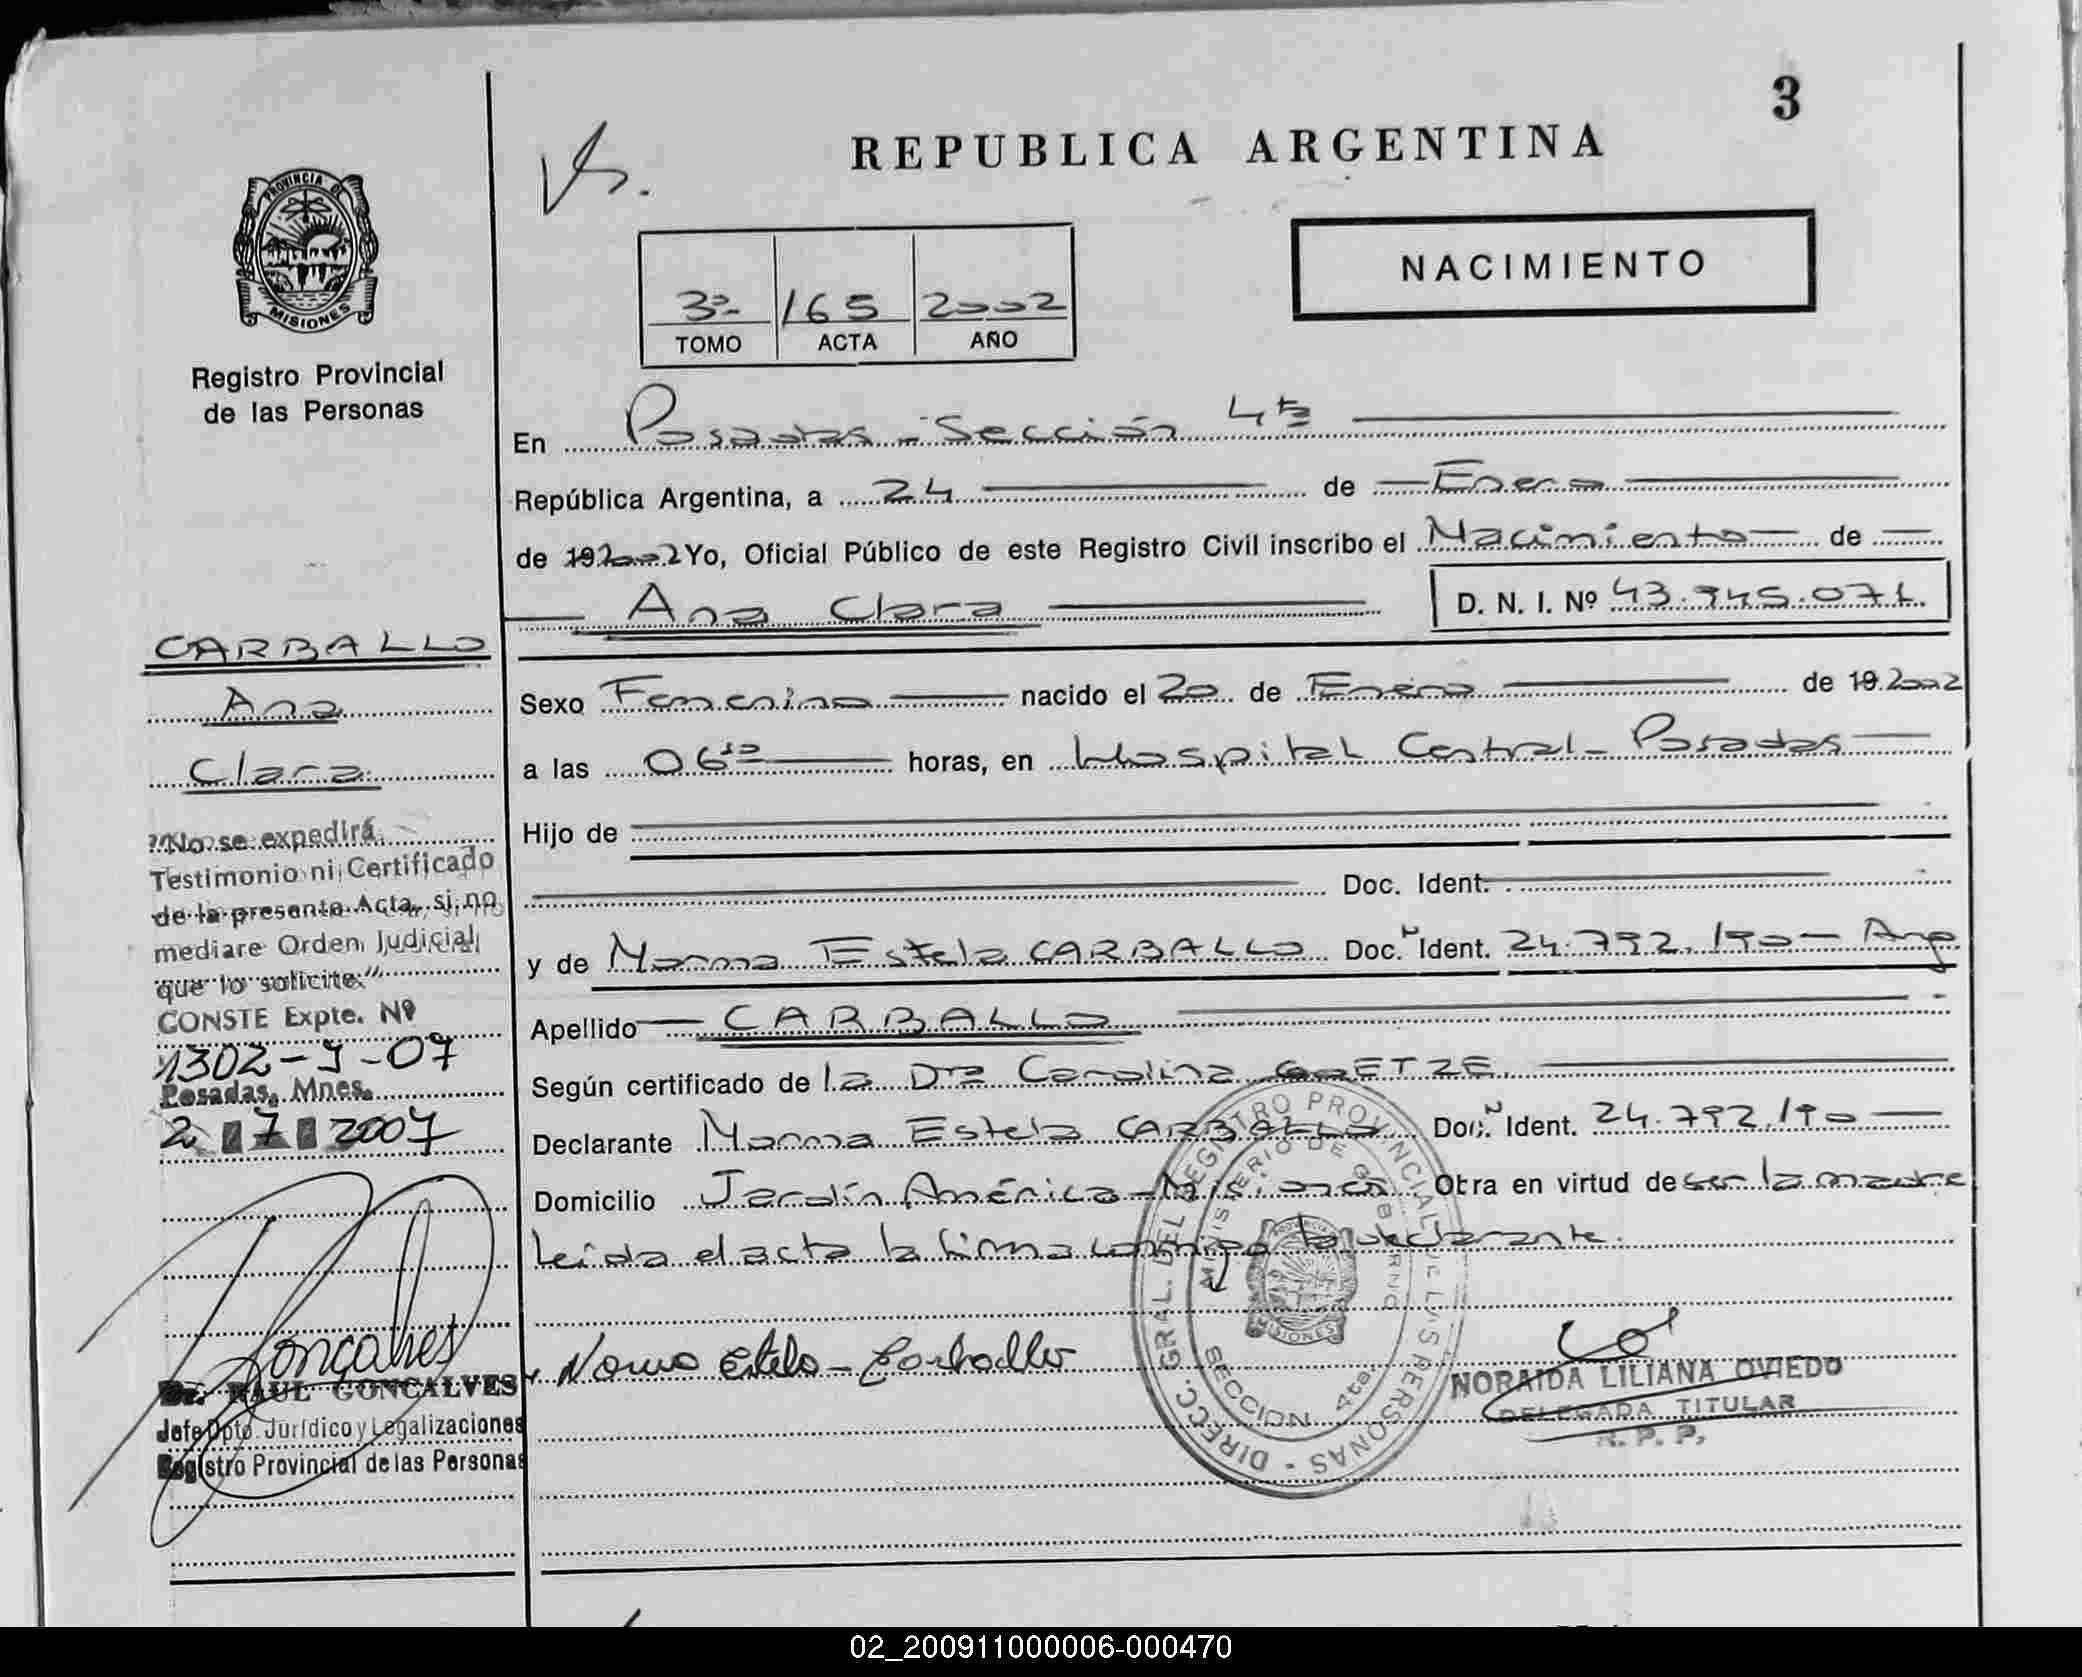 3
REPUBLICA ARGENTINA
NACIMIENTO
3º 165 2002
TOMO ACTA AÑO
PROVINCIA DE
MISIONES
Registro Provincial
de las Personas
En Posadas - Sección 4ta
República Argentina, a 24 de Enero
de 19 2002 Yo, Oficial Público de este Registro Civil inscribo el Nacimiento de
Ana Clara
D. N. I. Nº 43.945.071
CARBALLO
Ana
Clara
Sexo Femenino nacido el 20 de Enero de 19 2002
a las 06 horas, en Hospital Central - Posadas
Hijo de
Doc. Ident.
y de Norma Estela CARBALLO Doc. Ident. 24.792.190 - Arg
Apellido CARBALLO
Según certificado de la Dra Carolina GOETZE
Declarante Norma Estela CARBALLO Doc. Ident. 24.792.190
Domicilio Jardín América - Misiones Otra en virtud de ser la madre
Leída el acta la firma conmigo la declarante.
"No se expedirá
Testimonio ni Certificado
de la presente Acta, si no
mediare Orden Judicial
que lo solicite"
CONSTE Expte. Nº
1302-J-07
Posadas, Mnes.
2 7 2007
Goncalves
Dr. RAUL GONCALVES
Jefe Dpto. Jurídico y Legalizaciones
Registro Provincial de las Personas
Norma Estela - Carballo
DIRECC. GRAL. DEL REGISTRO PROVINCIAL DE LAS PERSONAS -
MINISTERIO DE GOBIERNO
MISIONES
SECCION 4ta.
NORAIDA LILIANA OVIEDO
DELEGADA TITULAR
R. P. P.
02_200911000006-000470